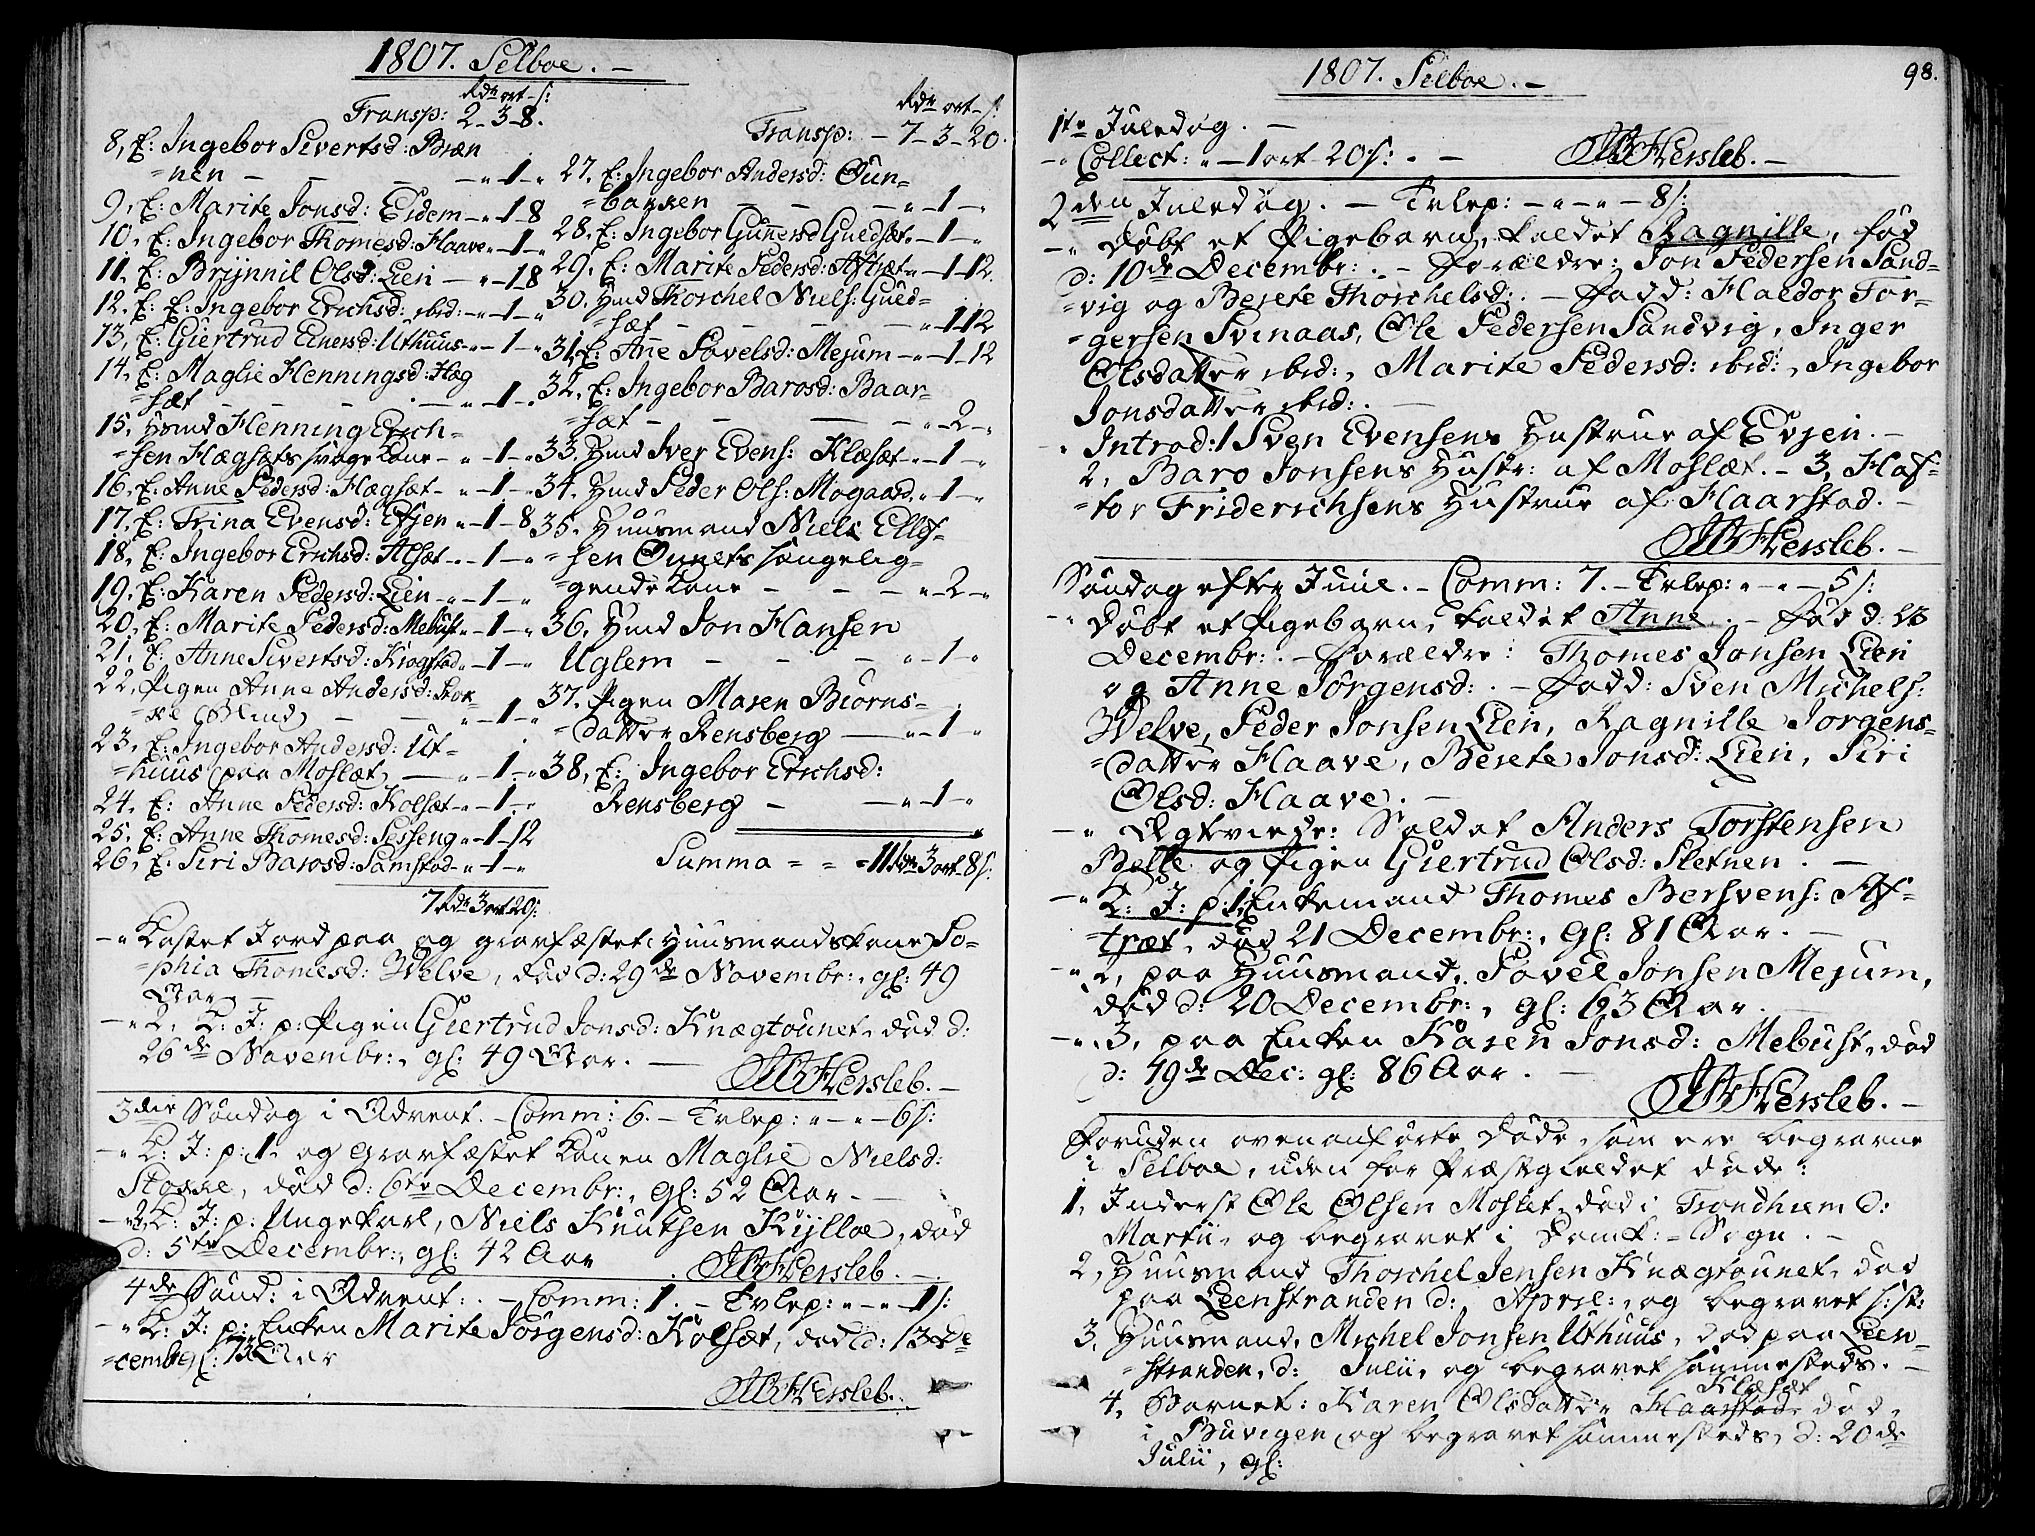 1807. Selboe. –
Rdr ort – s:
Transp: 2 – 3 – 8.
8, E: Ingebor Sivertsd: Bræn
=nen – – – – " 1 – "
9, E: Marite Jonsd: Eidem – " – 1 8
10, E: Ingebor Thomesd: Haave " – 1 – "
11, E: Brijnnil Olsd: Lien – " – 1 8
12, E: E: Ingebor Erichsd: ibid: – " – 1 – "
13, E: Giertrud Einersd: Uthuus – " – 1 – "
14, E: Maglie Henningsd: Hæg
=sæt – – – – " – 1 – "
15, Hsmd Henning Erich=
=sen Hægsæts svage Kone – " – 1 – "
16, E: Anne Pedersd: Hægsæt – " – 1 – "
17, E: Trina Evensd: Evjen " – 1 – 8
18, E: Ingebor Erichsd: Alsæt – " – 1 – "
19, E: Karen Pedersd: Lien – " – 1 – "
20, E: Marite Pedersd: Mebust " – 1 – "
21, E: Anne Sivertsd: Krogstad " – 1 – "
22, Pigen Anne Andersd: Stok
=ke (Blind) – – " – 1 – "
23, E: Ingebor Andersd: Ut=
=huus paa Moslæt, – " – 1 – "
24, E: Anne Pedersd: Kolsæt – " – 1 – "
25, E: Anne Thomesd: Sesseng " – 1 – 12
26, E: Siri Barosd: Samstad – " – 1 – "
7 Rdr 3 ort 20 s:
Rdr ort – s:
Transp: – 7 – 3 – 20.
27, E: Ingebor Andersd: Oun=
=bakken – – – " – 1 – "
28, E: Ingebor Gunersd Guedsæt " – 1 – "
29, E: Marite Pedersd: Aftræt " – 1 – 12.
30, Hmd Thorchel Niels: Gued=
=sæt – – – – " 1 12
31, E: Anne Povelsd: Mejum – " – 1 – 12
32, E: Ingebor Barosd: Baar=
=sæt – – – " – 2 – "
33, Hmd Iver Evens: Klæsæt – " – 1 – "
34, Hmd Peder Ols: Mogaard " – 1 – "
35, Huusmand Niels Ellef=
=sen Ounets sengelig=
=gende Kone – – – " – 2 – "
36, Hmd Jon Hansen
Uglem – – – " – 1 – "
37, Pigen Maren Biörns=
datter Rensberg – " – 1 – "
38, E: Ingebor Erichsd:
Rensberg – – " – 1 – "
Summa = = = 11 Rdr 3 ort – 8 s:
– " Kastet Jord paa og gravfæstet, Huusmandskone So=
=phia Thomesd: Welve, död d: 29de Novembr:, gl: 49
Aar. –
– " 2, K: J: p: Pigen Giertrud Jonsd: Knægtounet, död d:
26de Novembr:, gl: 49 Aar. –
MBHersleb. –
3die Söndag i Advent. – Comm: 6. – Tvlep: " – " – 6 s:
– " K: J: p: 1, og gravfæstet Konen Maglie Nielsd:
Stokke, död d: 6te Decembr:, gl: 52 Aar. –
– " 2, K: J: p: Ungekarl, Niels Knutsen Kijlloe, död
d: 5te Decembr:, gl: 42 Aar
MBHersleb. –
4de Sönd: i Advent. – Comm: 1. – Tvlep: " – " – 1 s:
– " K: J: p: Enken Marite Jörgensd: Kolsæt, död d: 13 De
=cembr gl: 73 Aar
MBHersleb.
1807. Selboe. –
98.
1te Juledag. –
– " Collect: " – 1 ort 20 s: . –
MBHersleb. –
2den Juledag. – Tvlep: – " – " – 8 s:
– " Döbt et Pigebarn, kaldet Ragnille, föd
d: 10de Decembr: . – Forældre: Jon Pedersen Sand=
=vig og Berete Thorchelsd: . – Fadd: Haldor Tor=
=gersen Svinaas, Ole Pedersen Sandvig, Inger
Olsdatter ibid:, Marite Pedersd: ibid:, Ingebor
Jonsdatter ibid: . –
– " Introd: 1 Sven Evensens Hustrue af Evjen. –
2, Baro Jonsens Hustr: af Moslæt. – 3, Haf=
=tor Friderichsens Hustrue af Haarstad. –
MBHersleb. –
Söndag efter Juul. – Comm: 7. – Tvlep: " – " – 5 s:
– " Döbt et Pigebarn, kaldet Anne. – Föd d: 18
Decembr: . – Forældre: Thomes Jonsen Lien
og Anne Jörgensd: . – Fadd: Sven Michels:
Welve, Peder Jonsen Lien, Ragnille Jörgens=
=datter Haave, Berete Jonsd: Lien, Siri
Olsd: Haave. –
– " Ægteviede: Soldat Anders Torstensen
Belle og Pigen Giertrud Olsd: Sletnen. –
– " K: J: p: 1, Enkemand Thomes Bersvens: Af=
=træt, död 21 Decembr:, gl: 81 Aar. –
– " 2, paa Huusmand, Povel Jonsen Mejum,
död d: 20 Decembr:, gl: 63 Aar. –
– " 3, paa Enken Karen Jonsd: Mebust, död
d: 19de Dec: gl: 86 Aar. –
MBHersleb. –
Foruden ovenanförte döde, som ere begravne
i Selboe, uden for Præstgieldet döde:
1, Inderst Ole Olsen Moslet, död i Trondhiem d:
Martii, og begravet i Domk: = Sogn. –
2, Huusmand Thorchel Jensen Knægtounet, död
paa Leenstranden d: April:, og begravet s: st:
3, Huusmand, Michel Jonsen Uthuus, död paa Leen=
=stranden, d: Julii, og begravet sammesteds. –
Klæsæt
4, Barnet: Karen Olsdatter Haarstad, död,
i Buvigen, og begravet sammesteds, d: 20de
Julii, gl: